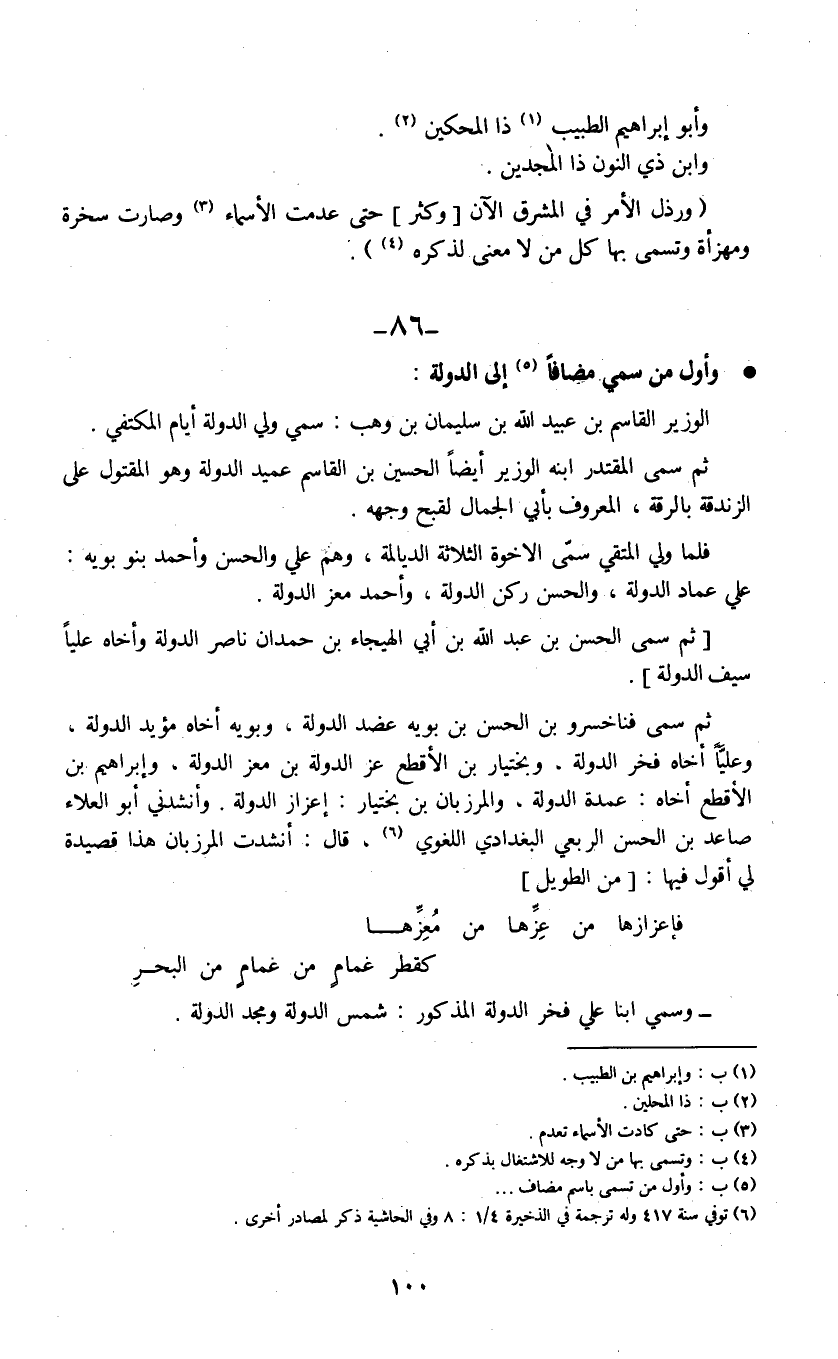 وأبو إبراهيم الطبيب (١) ذا المحكين (٢) .
وابن ذي النون ذا المجدين .
( ورذل الأمر في المشرق الآن [ وكثر ] حتى عدمت الأسماء (٣) وصارت سخرة
ومهزأة وتسمى بها كل من لا معنى لذكره (٤) ) .
ـ٨٦ـ
● وأول من سمي مضافاً (٥) إلى الدولة :
الوزير القاسم بن عبيد الله بن سليمان بن وهب : سمي ولي الدولة أيام المكتفي .
ثم سمى المقتدر ابنه الوزير أيضاً الحسين بن القاسم عميد الدولة وهو المقتول على
الزندقة بالرقة ، المعروف بأبي الجمال لقبح وجهه .
فلما ولي المتقي سمّى الاخوة الثلاثة الديالمة ، وهم علي والحسن وأحمد بنو بويه :
علي عماد الدولة ، والحسن ركن الدولة ، وأحمد معز الدولة .
[ ثم سمى الحسن بن عبد الله بن أبي الهيجاء بن حمدان ناصر الدولة وأخاه علياً
سيف الدولة ] .
ثم سمى فناخسرو بن الحسن بن بويه عضد الدولة ، وبويه أخاه مؤيد الدولة ،
وعليًّا أخاه فخر الدولة . وبختيار بن الأقطع عز الدولة بن معز الدولة . وإبراهيم بن
الأقطع أخاه : عمدة الدولة . والمرزبان بن بختيار : إعزاز الدولة . وأنشدني أبو العلاء
صاعد بن الحسن الربعي البغدادي اللغوي (٦) ، قال : أنشدت المرزبان هذا قصيدة
لي أقول فيها : [ من الطويل ]
فإعزازها من عِزِّها من مُعِزِّهـــا
كقطر غمامٍ من غمامٍ من البحـرِ
ـ وسمي ابنا علي فخر الدولة المذكور : شمس الدولة ومجد الدولة .
(١) ب : وإبراهيم بن الطبيب .
(٢) ب : ذا المحلين .
(٣) ب : حتى كادت الأسماء تعدم .
(٤) ب : وتسمى بها من لا وجه للاشتغال بذكره .
(٥) ب : وأول من تسمى باسم مضاف ...
(٦) توفي سنة ٤١٧ وله ترجمة في الذخيرة ١/٤ : ٨ وفي الحاشية ذكر لمصادر أخرى .
١٠٠